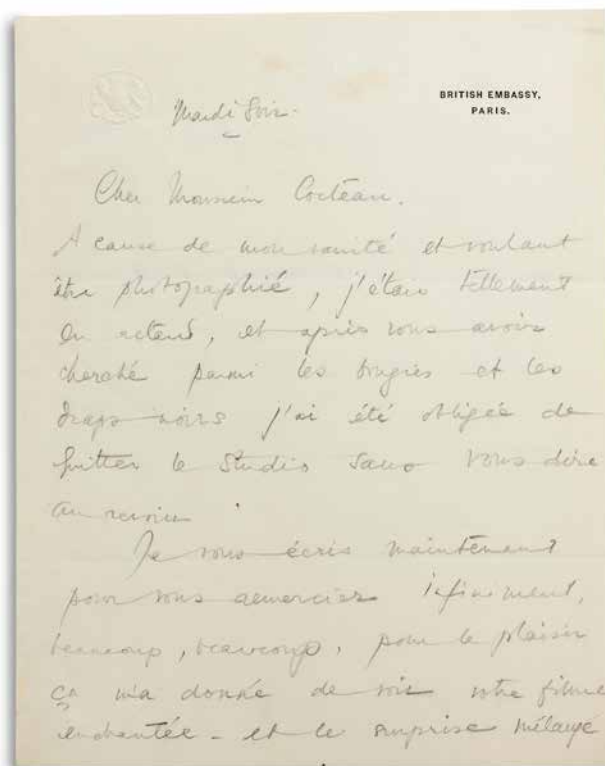 BRITISH EMBASSY,
PARIS.
Mardi Soir.
Cher Monsieur Cocteau.
A cause de mon vanité et voulant
être photographié, j'étais tellement
en retard, et après vous avoir
cherché parmi les bougies et les
draps noirs j'ai été obligée de
quitter le studio sans vous dire
au revoir
Je vous écris maintenant
pour vous remercier infiniment,
beaucoup, beaucoup, pour le plaisir
ça m'a donné de voir votre filme
enchantée - et le surprise mélangé